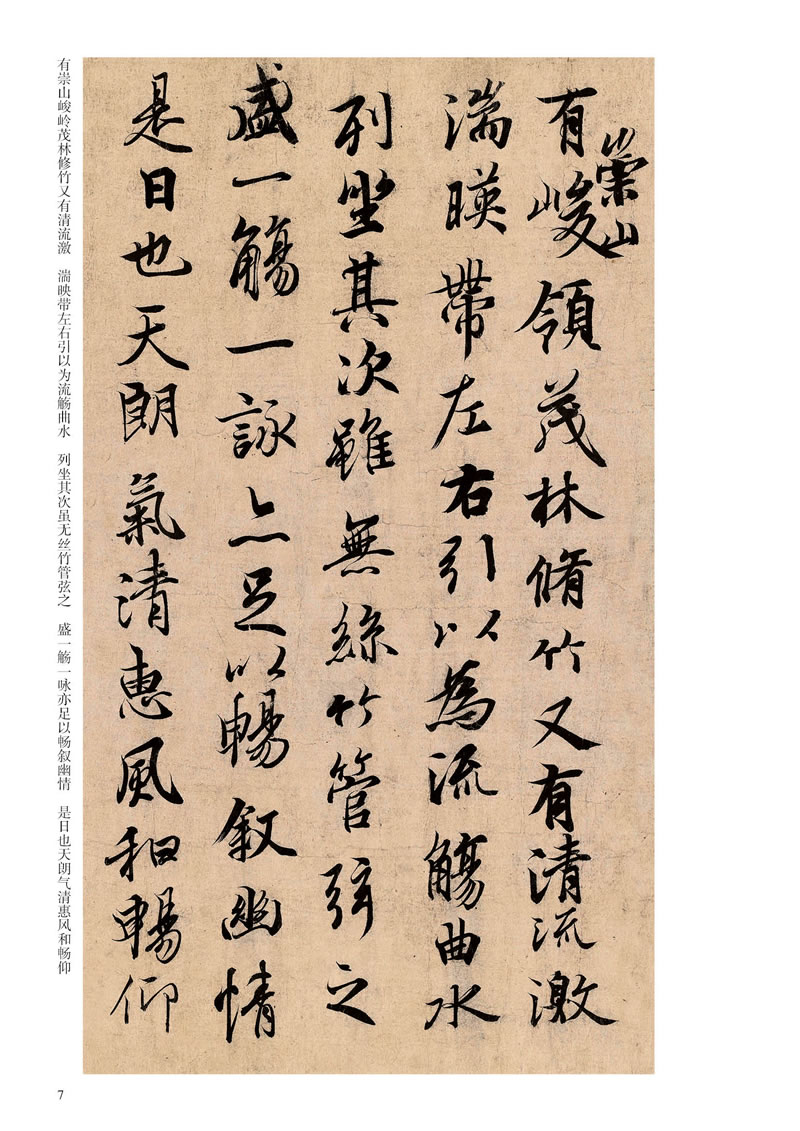 有崇山峻領茂林脩竹又有清流激
湍暎帶左右引以為流觴曲水
列坐其次雖無絲竹管弦之
盛一觴一詠亦足以暢叙幽情
是日也天朗氣清惠風和暢仰
有崇山峻岭茂林修竹又有清流激　湍映带左右引以为流觞曲水　列坐其次虽无丝竹管弦之　盛一觞一咏亦足以畅叙幽情　是日也天朗气清惠风和畅仰
7